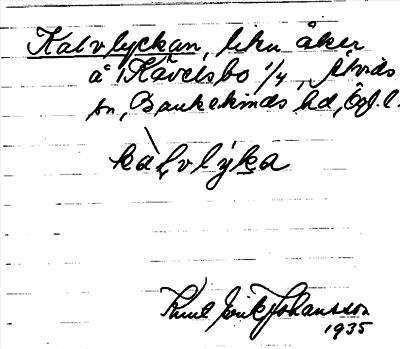 Kalvlyckan, liten åker
å Kavelsbo 1/4, Åtvids
sn, Bankekinds hd, Ögl.l.
kalvlýka
Knut Erik Johansson
1935